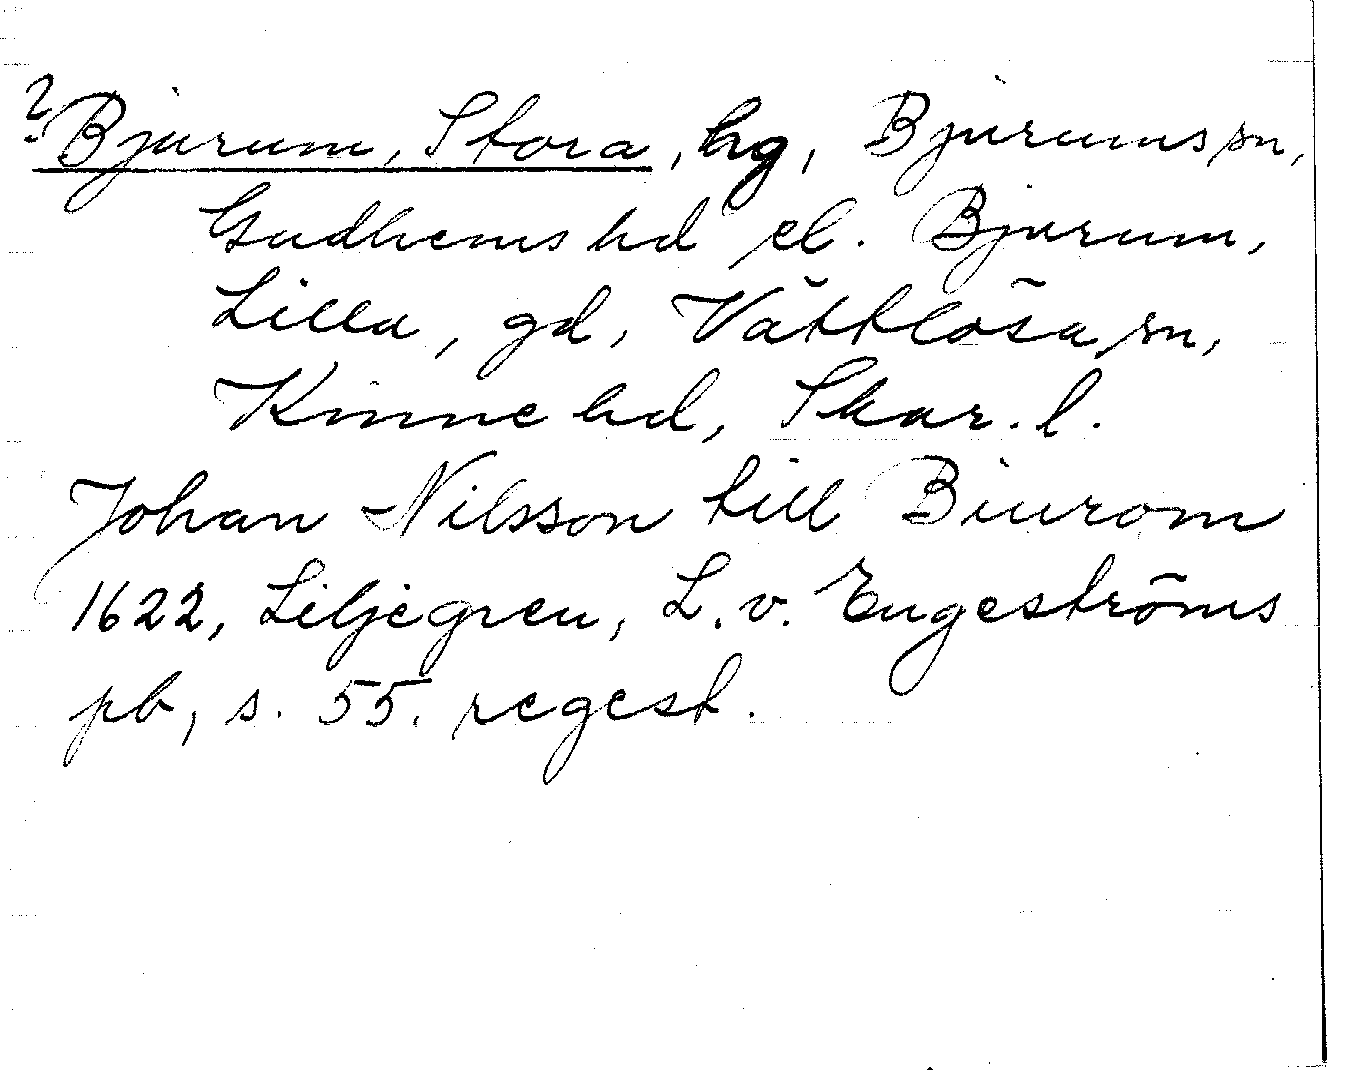 ? Bjurum, Stora, hg, Bjurums sn,
Gudhems hd el. Bjurum,
Lilla, gd, Vättlösa sn,
Kinne hd, Skar. l.
Johan Nilsson till Biurom
1622, Liljegren, L. v. Engeströms
pb, s. 55. regest.